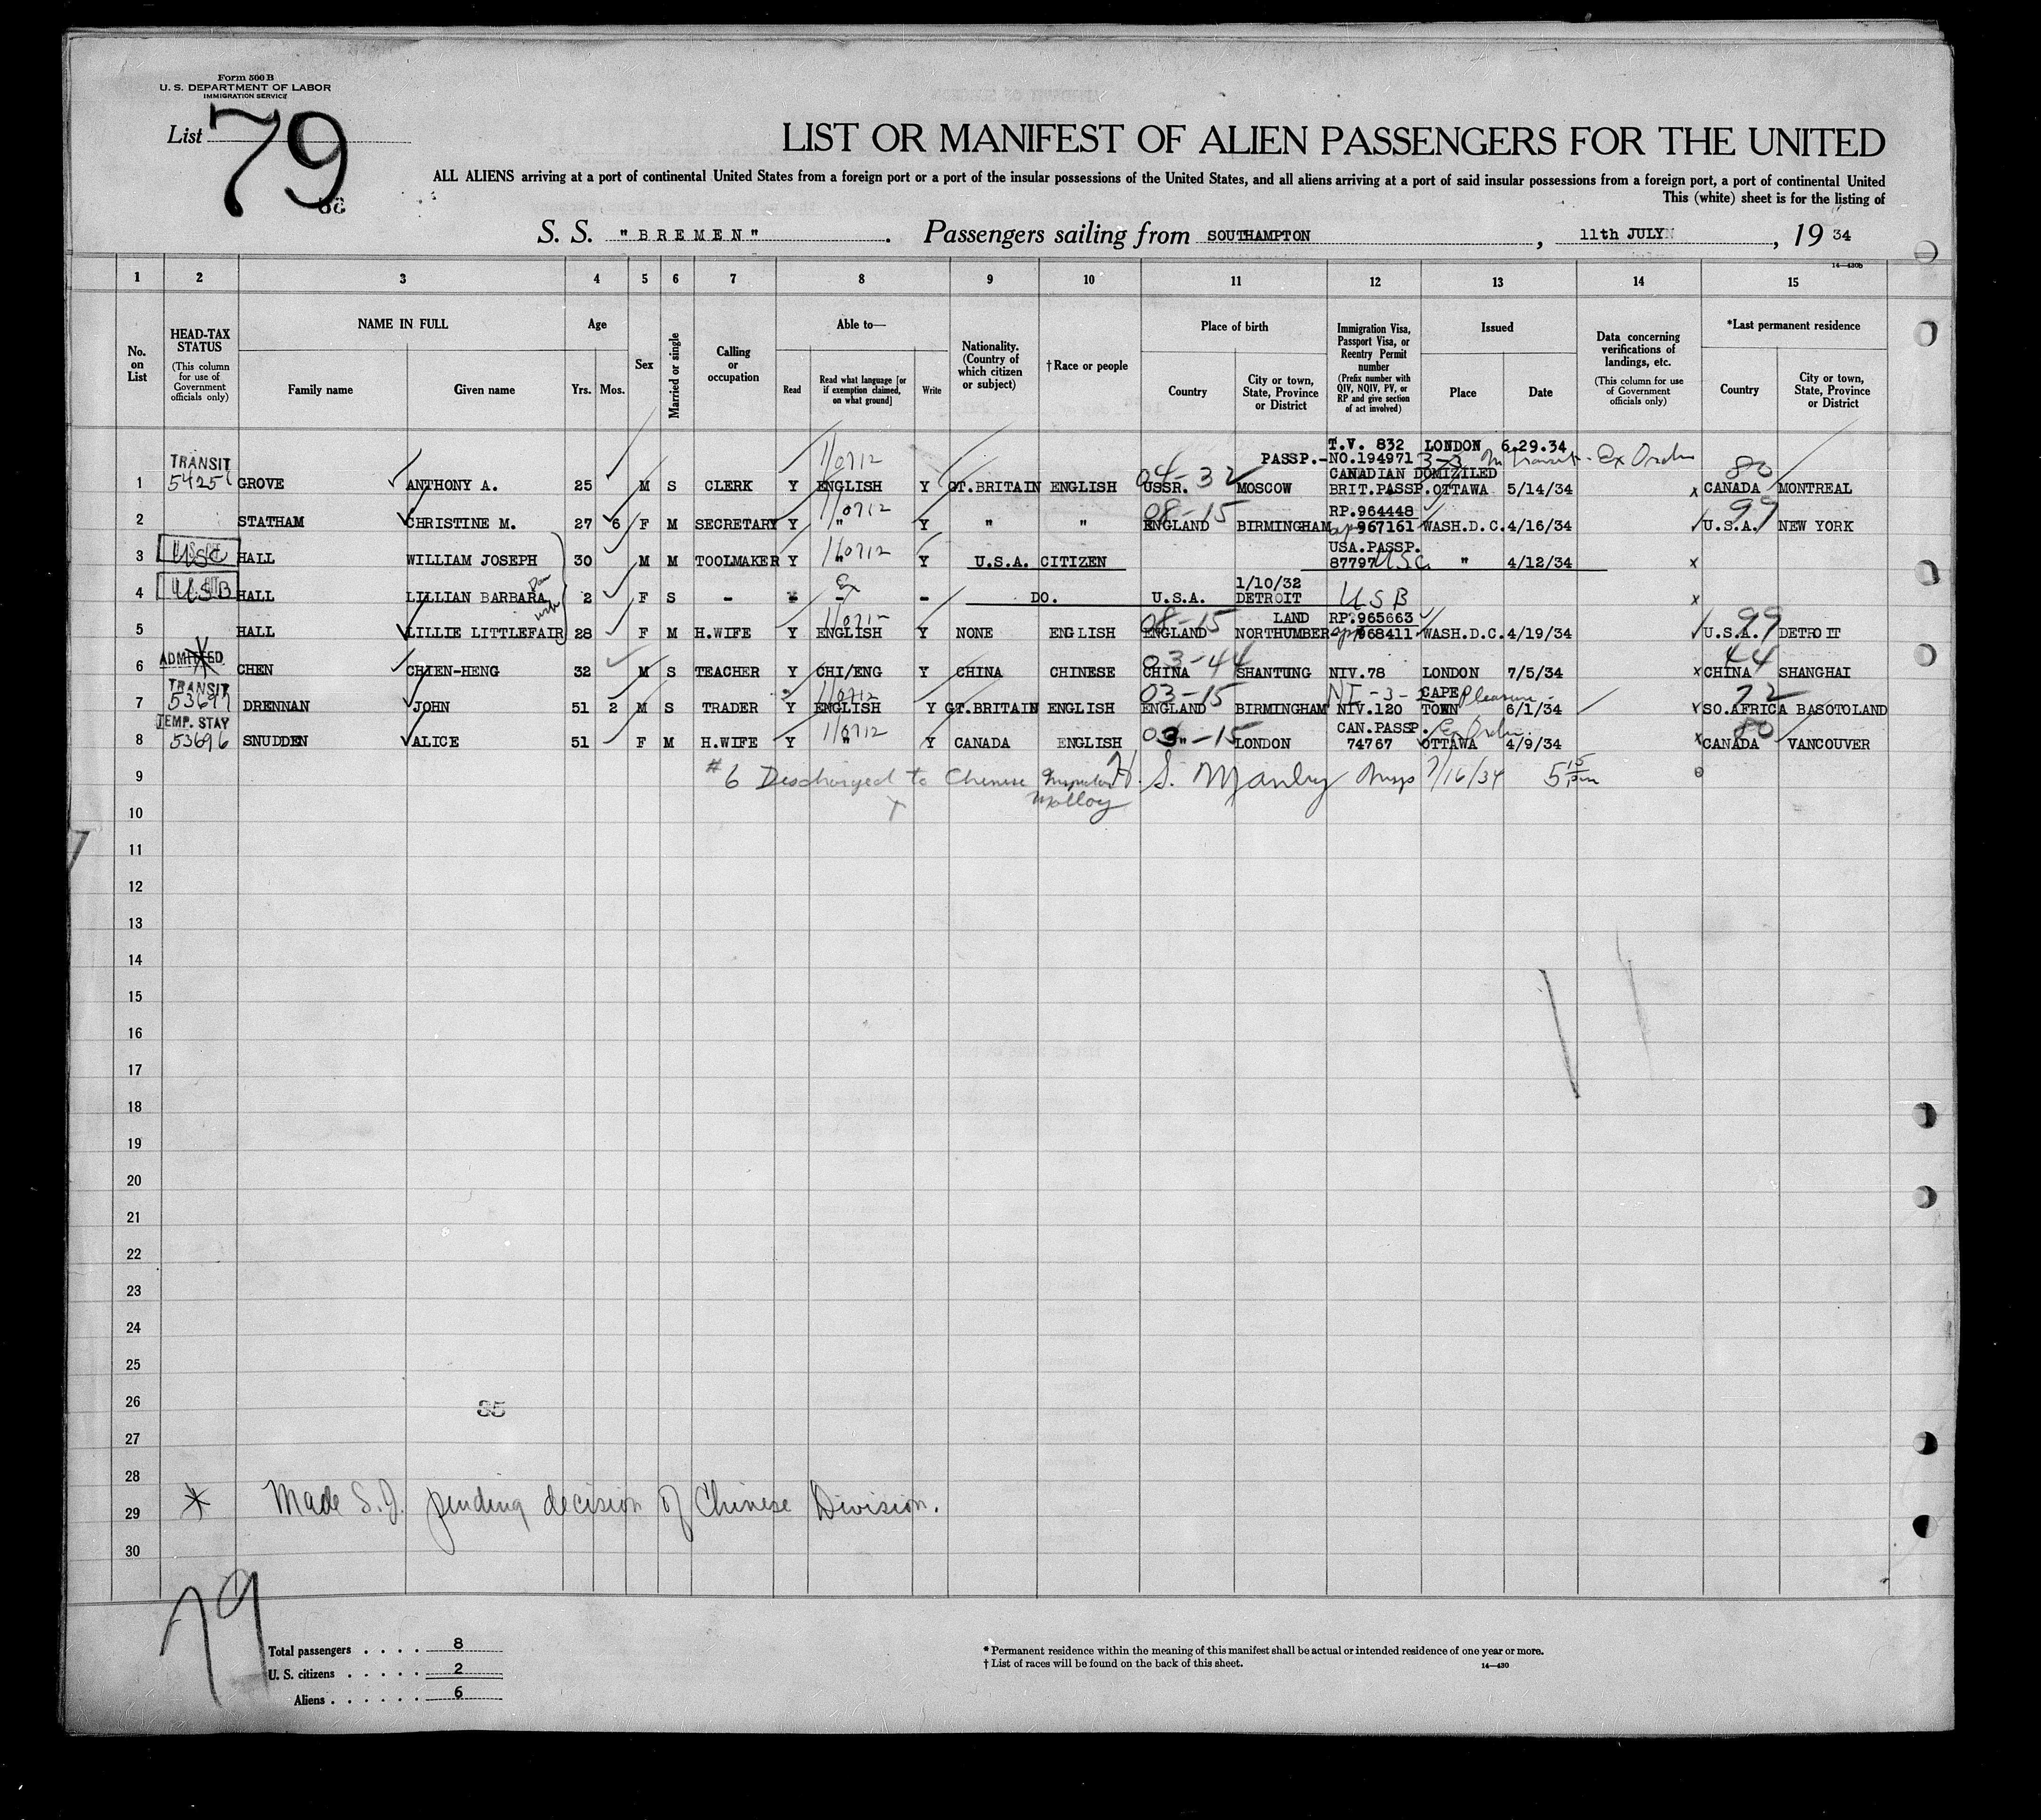 Form 500 B
U. S. DEPARTMENT OF LABOR
IMMIGRATION SERVICE
List 79
LIST OR MANIFEST OF ALIEN PASSENGERS FOR THE UNITED
ALL ALIENS arriving at a port of continental United States from a foreign port or a port of the insular possessions of the United States, and all aliens arriving at a port of said insular possessions from a foreign port, a port of continental United
This (white) sheet is for the listing of
S. S. "BREMEN". Passengers sailing from SOUTHAMPTON, 11th JULY, 1934
14—430b
1 2 3 4 5 6 7 8 9 10 11 12 13 14 15
No. on List
HEAD-TAX STATUS (This column for use of Government officials only)
NAME IN FULL
Family name Given name
Age
Yrs. Mos.
Sex
Married or single
Calling or occupation
Able to—
Read Read what language [or if exemption claimed, on what ground] Write
Nationality. (Country of which citizen or subject)
†Race or people
Place of birth
Country City or town, State, Province or District
Immigration Visa, Passport Visa, or Reentry Permit number (Prefix number with QIV, NQIV, PV, or RP and give section of act involved)
Issued
Place Date
Data concerning verifications of landings, etc. (This column for use of Government officials only)
*Last permanent residence
Country City or town, State, Province or District
T.V. 832 LONDON 6.29.34
TRANSIT 11/0712 PASSP.-NO.194971 3-3 In transit - Ex Order
04-32 CANADIAN DOMIZILED 80
1 54251 GROVE ANTHONY A. 25 M S CLERK Y ENGLISH Y GT.BRITAIN ENGLISH USSR. MOSCOW BRIT.PASSP. OTTAWA 5/14/34 x CANADA MONTREAL
11/0712 08-15 RP.964448 99
2 STATHAM CHRISTINE M. 27 6 F M SECRETARY Y " Y " " ENGLAND BIRMINGHAM 967161 WASH.D.C. 4/16/34 U.S.A. NEW YORK
USA.PASSP.
3 USC HALL WILLIAM JOSEPH 30 M M TOOLMAKER Y " 11/0712 Y U.S.A. CITIZEN 87797 USC " 4/12/34 x
1/10/32
4 USB HALL LILLIAN BARBARA 2 F S - - - - DO. U.S.A. DETROIT USB x
wife 08-15 LAND RP.965663 99
5 HALL LILLIE LITTLEFAIR 28 F M H.WIFE Y ENGLISH Y NONE ENGLISH ENGLAND NORTHUMBER 968411 WASH.D.C. 4/19/34 U.S.A. DETROIT
ADMITTED 03-44 44
6 CHEN CHIEN-HENG 32 M S TEACHER Y CHI/ENG Y CHINA CHINESE CHINA SHANTUNG NIV.78 LONDON 7/5/34 x CHINA SHANGHAI
TRANSIT 11/0712 03-15 CAPE Pleasure 72
7 53697 DRENNAN JOHN 51 2 M S TRADER Y ENGLISH Y GT.BRITAIN ENGLISH ENGLAND BIRMINGHAM NIV.120 TOWN 6/1/34 SO.AFRICA BASOTOLAND
TEMP. STAY 11/0712 03-15 CAN.PASSP. Ex Order 80
8 53696 SNUDDEN ALICE 51 F M H.WIFE Y " Y CANADA ENGLISH " LONDON 74767 OTTAWA 4/9/34 x CANADA VANCOUVER
9 #6 Discharged to Chinese Inspector H. S. Manley Insp 7/16/34 5 15 pm
Malloy
10
11
12
13
14
15
16
17
18
19
20
21
22
23
24
25
26
85
27
28
29 * Made S.J. pending decision of Chinese Division.
30
79
Total passengers . . . . 8
U. S. citizens . . . . . 2
Aliens . . . . . . 6
* Permanent residence within the meaning of this manifest shall be actual or intended residence of one year or more.
† List of races will be found on the back of this sheet.
14—430